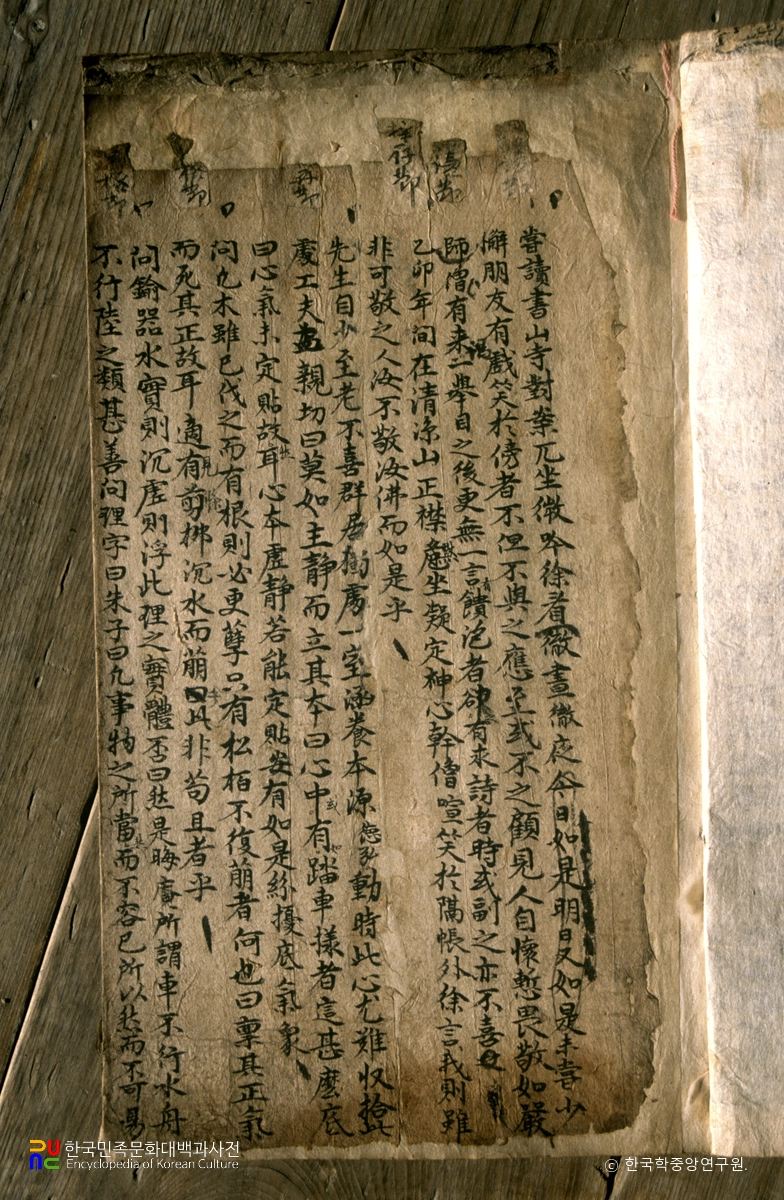 嘗讀書山寺對案兀坐微吟徐看徹晝徹夜今日如是明日又如是未嘗少
懈朋友有戲笑於傍者不但不與之應至或不之顧見人自懷慙畏敬如嚴
師僧有来一擧目之後更無一言饋泡者却有求詩者時或副之亦不喜
乙卯年間在清凉山正襟危坐凝定神心幹僧喧笑於隔帳外徐言我則雖
非可敬之人汝不敬汝佛而如是乎
先生自少至老不喜群居獨處一室涵養本源 動時此心尤難收拾此
處工夫 親切曰莫如主静而立其本曰心中有踏車樣者這甚麽底
曰心氣未定貼故耳心本虛静若能定貼安有如是紛擾底氣象
問凡木雖已伐之而有根則必更孽只有松栢不復萠者何也曰稟其正氣
而死其正故耳適有 梆沉水而萠 此非苟且者乎
問鍮器水實則沉虛則浮此理之實體否曰然是晦庵所謂車不行水舟
不行陸之類甚善問理字曰朱子曰凡事物之所當而不容已所以然而不可易
한국민족문화대백과사전
Encyclopedia of Korean Culture
ⓒ 한국학중앙연구원.